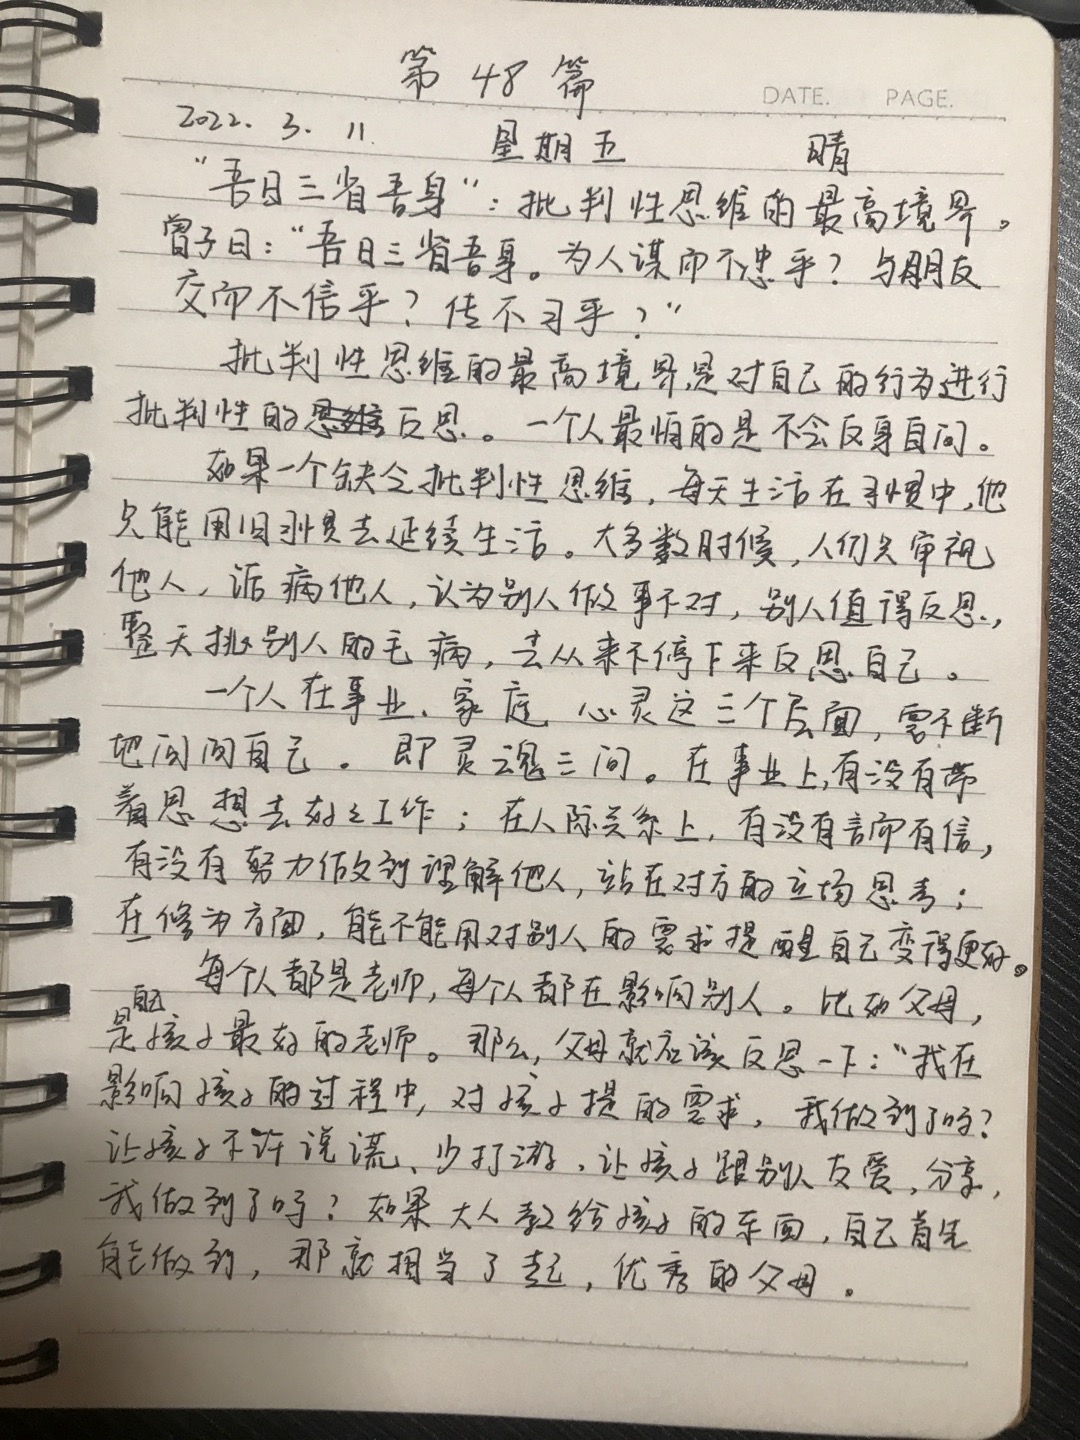 第48篇
DATE. PAGE.
2022.3.11. 星期五 晴
“吾日三省吾身”：批判性思维的最高境界。
曾子曰：“吾日三省吾身。为人谋而不忠乎？与朋友
交而不信乎？传不习乎？”
批判性思维的最高境界，是对自己的行为进行
批判性的反思。一个人最怕的是不会反身自问。
如果一个缺乏批判性思维，每天生活在习惯中，他
只能用旧习惯去延续生活。大多数时候，人们只审视
他人，诟病他人，认为别人做事不对，别人值得反思，
整天挑别人的毛病，去从来不停下来反思自己。
一个人在事业、家庭、心灵这三个层面，需不断
地问问自己。即灵魂三问。在事业上，有没有带
着思想去好好工作；在人际关系上，有没有言而有信，
有没有努力做到理解他人，站在对方的立场思考；
在修为方面，能不能用对别人的需求提醒自己变得更好。
每个人都是老师，每个人都在影响别人。比如父母，
是自己孩子最好的老师。那么，父母就应该反思一下：“我在
影响孩子的过程中，对孩子提的需求，我做到了吗？
让孩子不许说谎、少打游，让孩子跟别人友爱，分享，
我做到了吗？如果大人教给孩子的东西，自己首先
能做到，那就相当了起，优秀的父母。